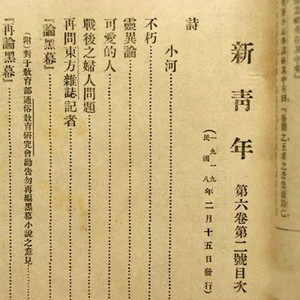 新青年 第六卷第二號目次
(民國八年 一九一九年二月十五日發行)
詩
小河
不朽
靈異論
可愛的人
戰後之婦人問題
再問東方雜誌記者
『論黑幕』
(附)對于敎育部通俗敎育硏究會勸告勿再編黑幕小說之意見
『再論黑幕』